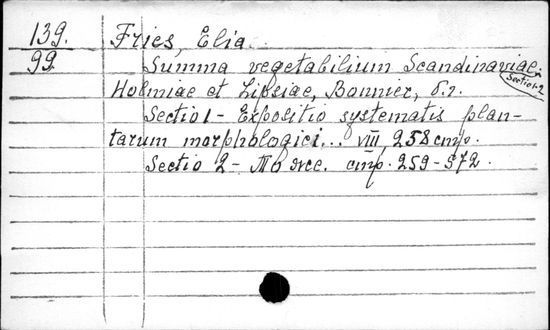 139.
99.
Fries, Elia.
Summa vegetabilium Scandinaviae.
Section 1-2
Holmiae et Lipsiae, Bonnier, б.г.
Sectio 1 - Expositio systematis plan-
tarum morphologici... VIII, 258 стр.
Sectio 2 - То же. стр. 259-572.